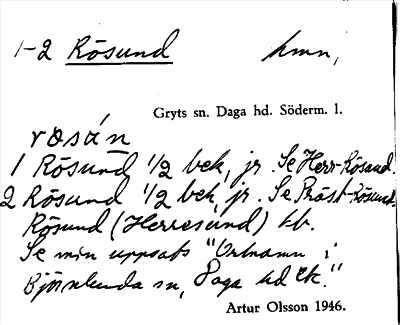 1-2 Rösund hmn,
Gryts sn. Daga hd. Söderm. l.
rosán
1 Rösund 1/2 bek, jr. Se Herr-Rösund.
2 Rösund 1/2 bek, jr. Se Präst-Rösund.
Rösund (Herresund) kb.
Se min uppsats "Ortnamn i
Björnlunda sn, Daga hd etc."
Artur Olsson 1946.